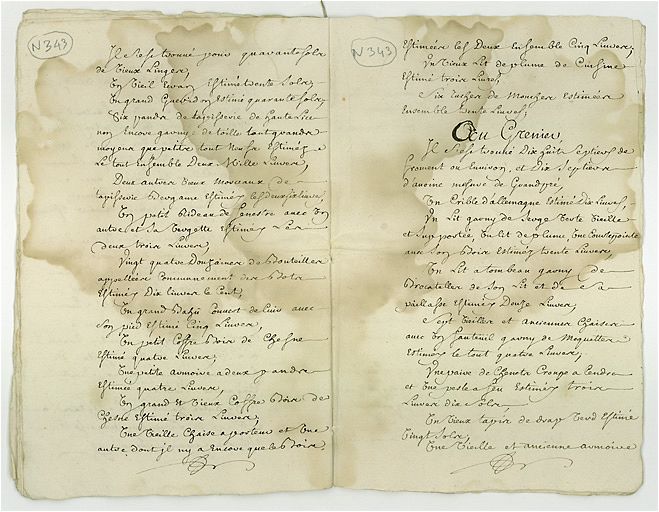 N 343
Il s'est trouvé pour quarante sols
de vieux Linges,
Un vieil Ecran Estimé trente sols,
Un grand Gueridon Estimé quarante sols,
Six pandes de tapisserie de haute lice
non Encore garnys de toille tant grandes
moyen que petite tout neufs Estimés
Le tout Ensemble Deux Mille Livres,
Deux autres vieux Morceaux de
tapisserie Estimés les deux six livres,
Un petit Rideau de fenestre avec Un
autre et sa Estimés Les
deux trois Livres,
Vingt quatre Douzaines de Bouteilles
appellées Communement de
Estimés Dix Livres le Cent,
Un grand Bahu Couvert de Cuir avec
son pied Estimé Cinq Livres,
Un petit Coffre Bois de Chesne
Estimé quatre Livres,
Une petite armoire a deux pandes
Estimée quatre Livres,
Un grand et vieux Coffre Bois de
Chesne Estimé trois Livres,
Une vieille Chaise a porteur et Une
autre, dont il ny a Encore que le Bois
N 343
Estimées les Deux Ensemble Cinq Livres,
Un vieux Lit de plume de Cuisine
Estimé trois Livres,
Six Ruches de Mouches Estimées
Ensemble trente Livres,
Au Grenier
Il s'est trouvé Dix huit Septiers de
froment ou Environ, et Dix Septiers
d'avoine mesure de Grandpré,
Un Crible d'allemagne Estimé Dix Livres,
Un Lit garny de Serge Verte vieille
et Un Lit de plume, Une
avec son Bois Estimés trente Livres,
Un Lit a tombeau garny de
Brocatelle de son Lit et de sa
paillasse Estimés Douze Livres,
Sept vieilles et anciennes Chaises
avec Un fauteuil garny de Moquettes
Estimés le tout quatre Livres,
Une paire de Chenets a Cendre
et Une a feu Estimés trois
Livres dix sols
Un vieux tapis de drap Verd Estimé
Vingt sols,
Une vieille et ancienne armoire